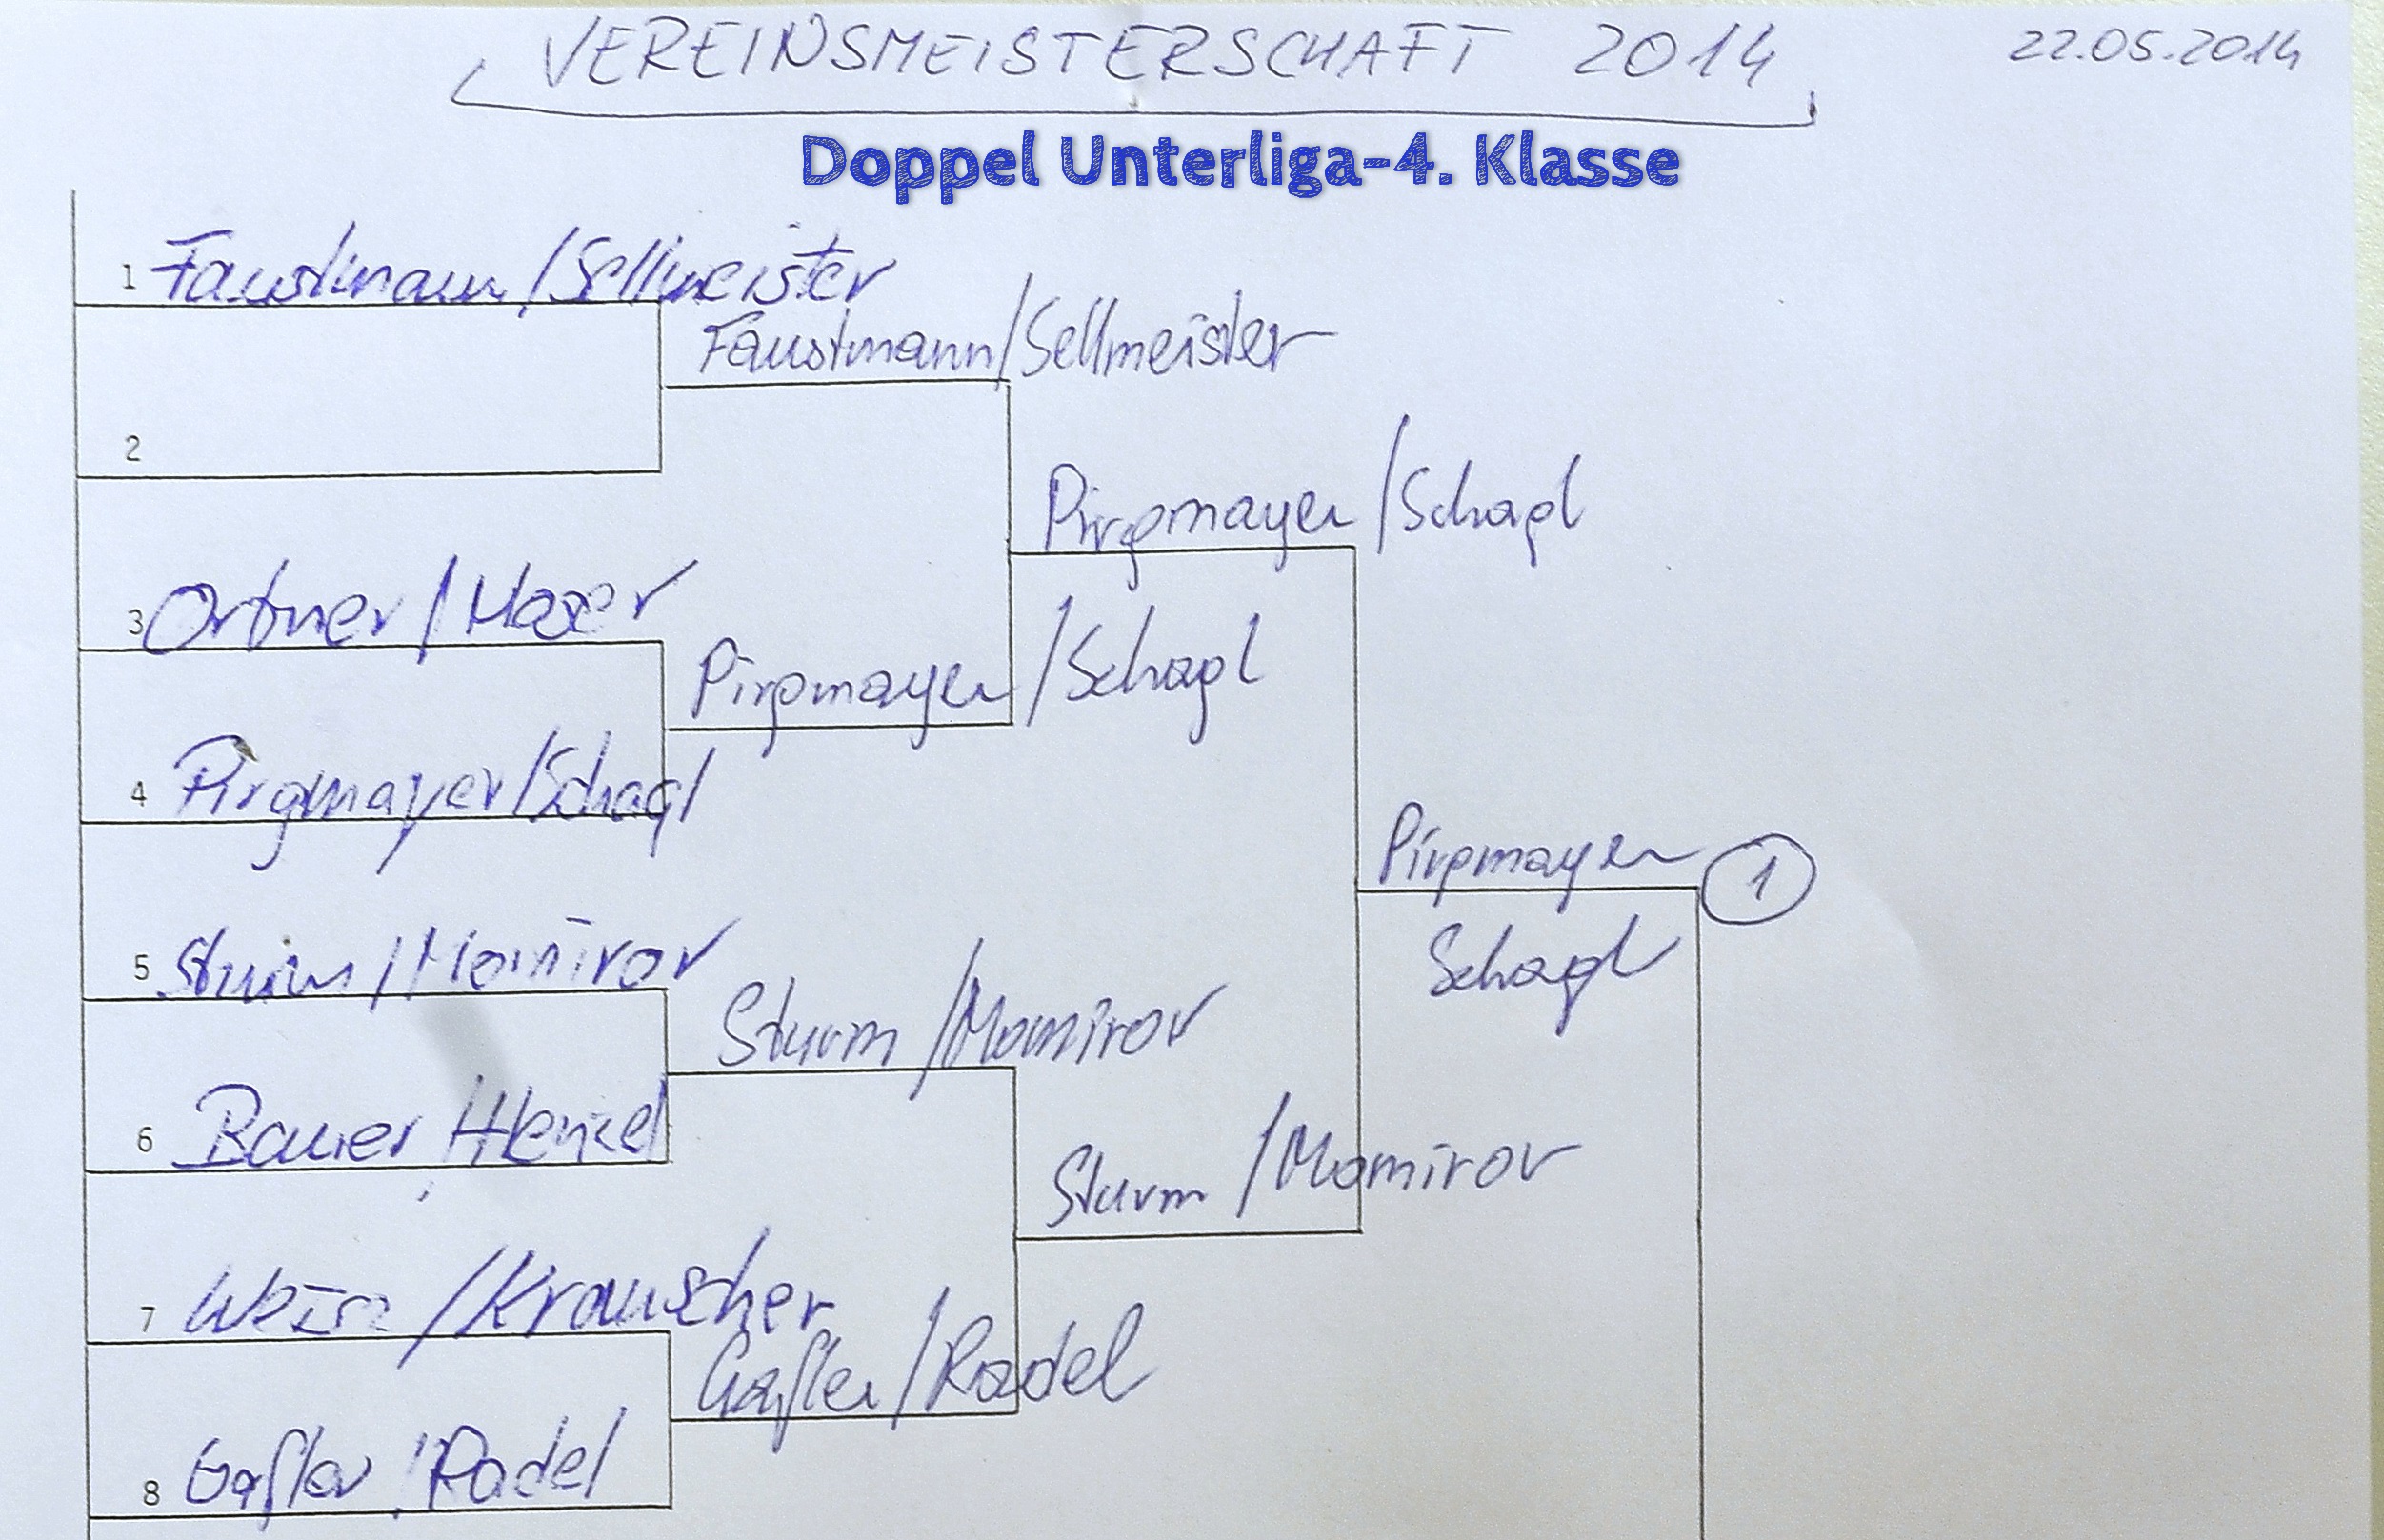 VEREINSMEISTERSCHAFT 2014 22.05.2014
Doppel Unterliga-4. Klasse
1 Faustmann/Sellmeister
Faustmann/Sellmeister
2
Pirgmayer/Schagl
3 Ortner/Moser
Pirgmayer/Schagl
4 Pirgmayer/Schagl
Pirgmayer 1
Schagl
5 Sturm/Momirov
Sturm/Momirov
6 Bauer/Henzel
Sturm/Momirov
7 /Krauscher
Gafler/Radel
8 Gafler/Radel